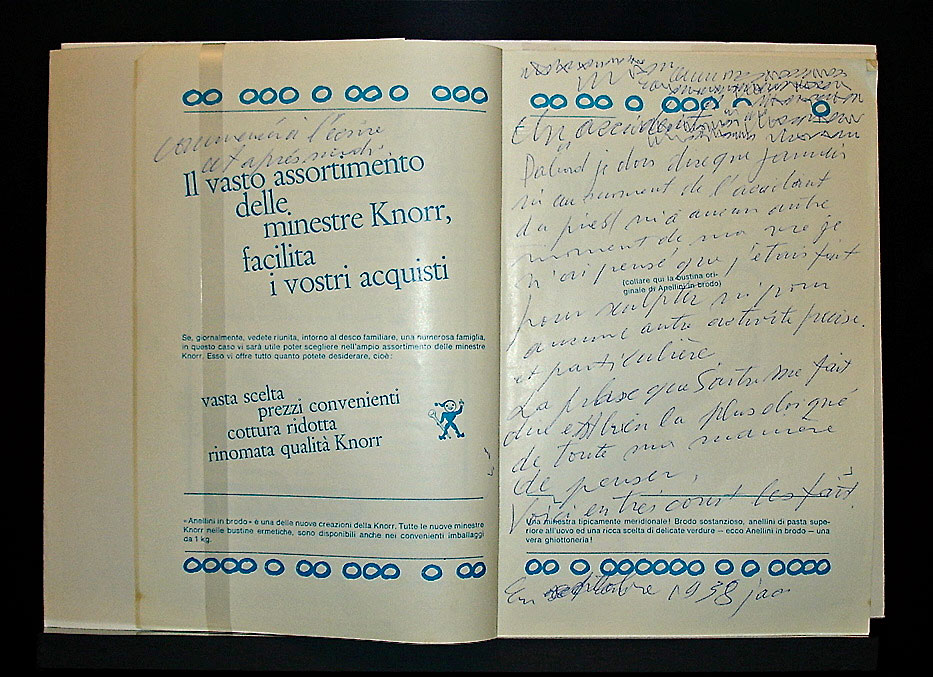 commencé à l'écrire
cet après midi.
Il vasto assortimento
delle
minestre Knorr,
facilita
i vostri acquisti
Se, giornalmente, vedete riunita, intorno al desco familiare, una numerosa famiglia,
in questo caso vi sarà utile poter scegliere nell'ampio assortimento delle minestre
Knorr. Esso vi offre tutto quanto potete desiderare, cioè:
vasta scelta
prezzi convenienti
cottura ridotta
rinomata qualità Knorr
«Anellini in brodo» è una delle nuove creazioni della Knorr. Tutte le nuove minestre
Knorr nelle bustine ermetiche, sono disponibili anche nei convenienti imballaggi
da 1 kg.
Un accident
Dabord je dois dire que jamais
ni au moment de l'accident
du pied ni à aucun autre
moment de ma vie je
n'ai pensé que j'étais fait
(collare qui la bustina ori-
ginale di Anellini in brodo)
pour sculpter ni pour
aucune autre activité précise
et particulière.
La phrase que Sartre me fait
dire est bien la plus éloignée
de toute ma manière
de penser,
Voici entre cont les fait.
Una minestra tipicamente meridionale! Brodo sostanzioso, anellini di pasta supe-
riore all'uovo ed una ricca scelta di delicate verdure — ecco Anellini in brodo — una
vera ghiottoneria!
En octobre 1938